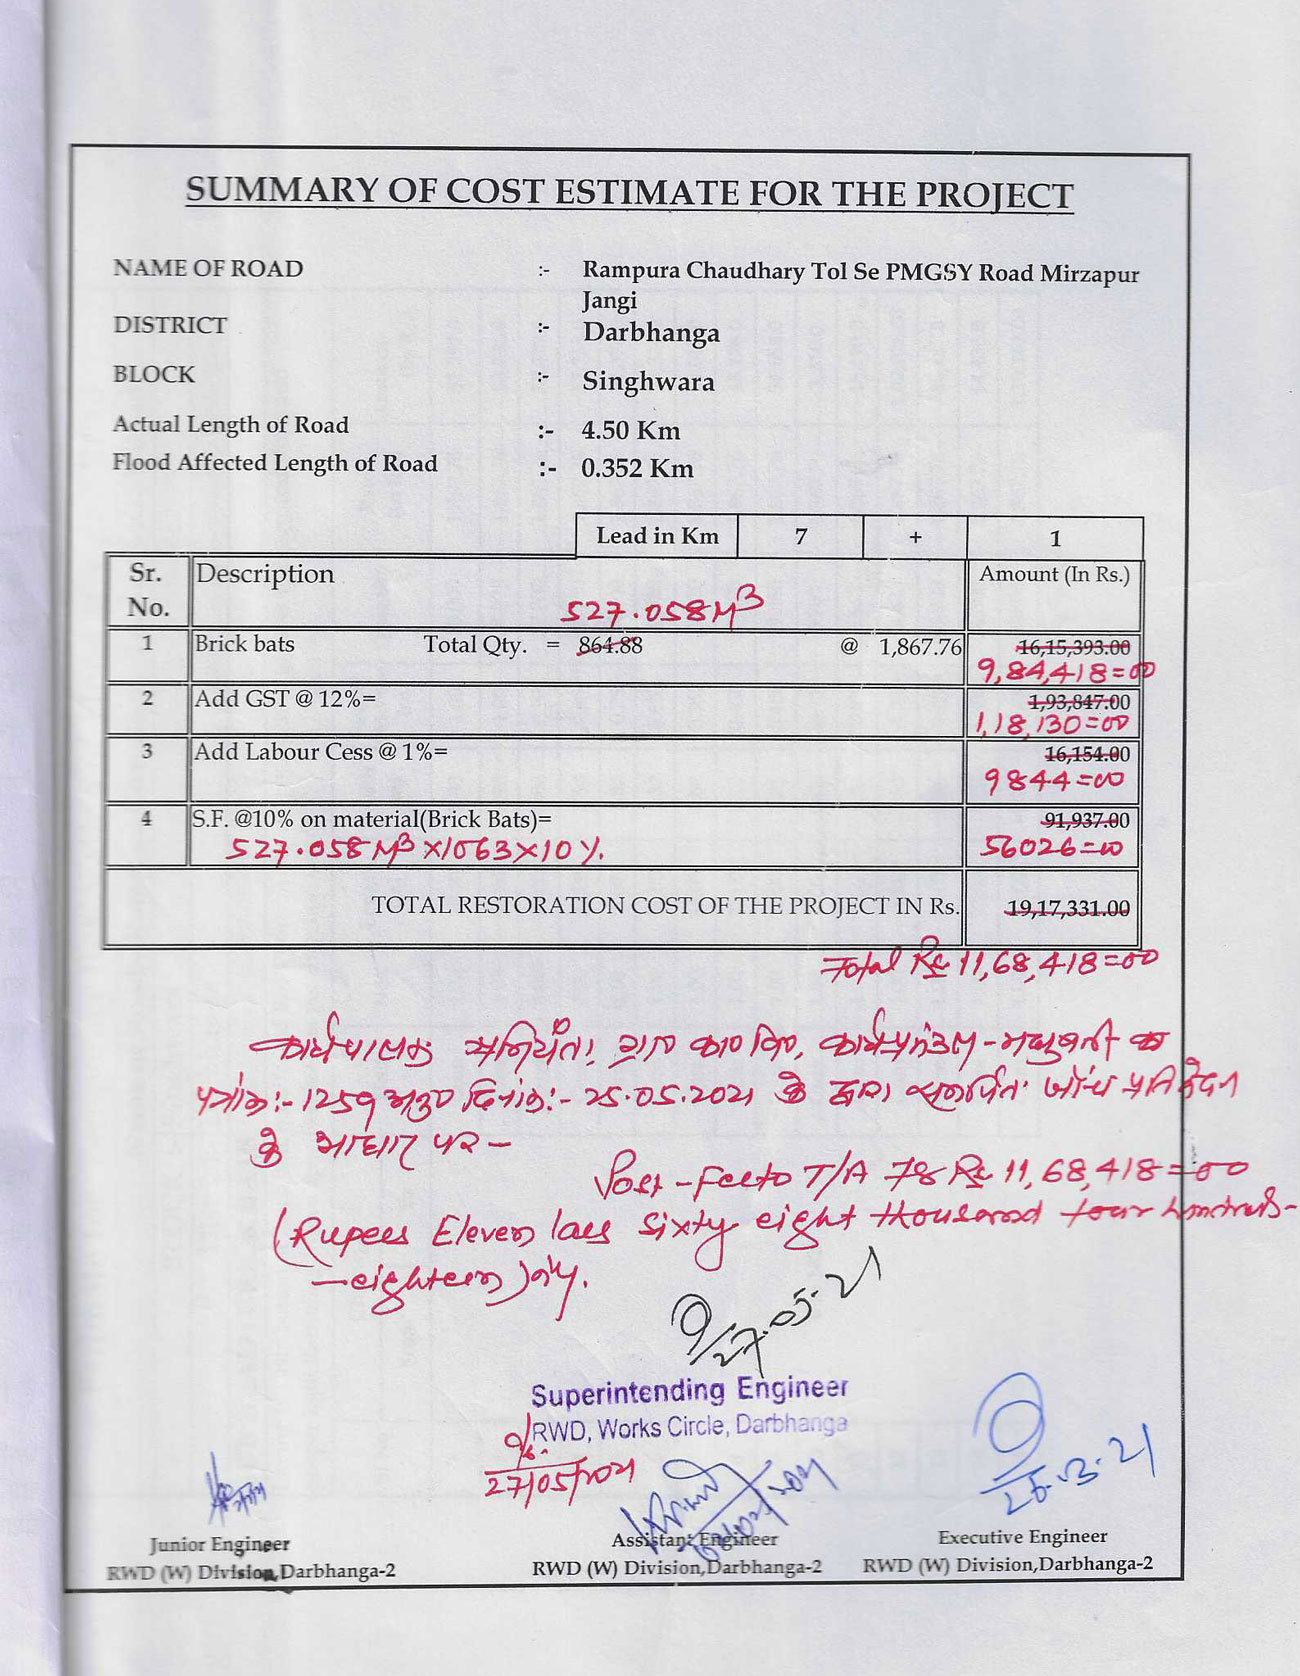 SUMMARY OF COST ESTIMATE FOR THE PROJECT
NAME OF ROAD :- Rampura Chaudhary Tol Se PMGSY Road Mirzapur
Jangi
DISTRICT :- Darbhanga
BLOCK :- Singhwara
Actual Length of Road :- 4.50 Km
Flood Affected Length of Road :- 0.352 Km
Lead in Km 7 + 1
Sr. No. Description Amount (In Rs.)
527.058M³
1 Brick bats Total Qty. = 864.88 @ 1,867.76 16,15,393.00
9,84,418=00
2 Add GST @ 12%= 1,93,847.00
1,18,130=00
3 Add Labour Cess @ 1%= 16,154.00
9844=00
4 S.F. @10% on material(Brick Bats)= 91,937.00
527.058M³X1063X10%. 56026=00
TOTAL RESTORATION COST OF THE PROJECT IN Rs. 19,17,331.00
Total Rs 11,68,418=00
कार्यपालक अभियंता, ग्रा० का० वि०, कार्य प्रमंडल-मधुबनी के
पत्रांक:- 1259 अनु० दिनांक:- 25.05.2021 के द्वारा समर्पित जाँच प्रतिवेदन
के आधार पर-
Post-Facto T/A for Rs 11,68,418=00
(Rupees Eleven lacs Sixty eight thousand four hundred-
-eighteen) only.
27.05.21
Superintending Engineer
RWD, Works Circle, Darbhanga
27/05/2021
Junior Engineer Assistant Engineer Executive Engineer
RWD (W) Division,Darbhanga-2 RWD (W) Division,Darbhanga-2 RWD (W) Division,Darbhanga-2